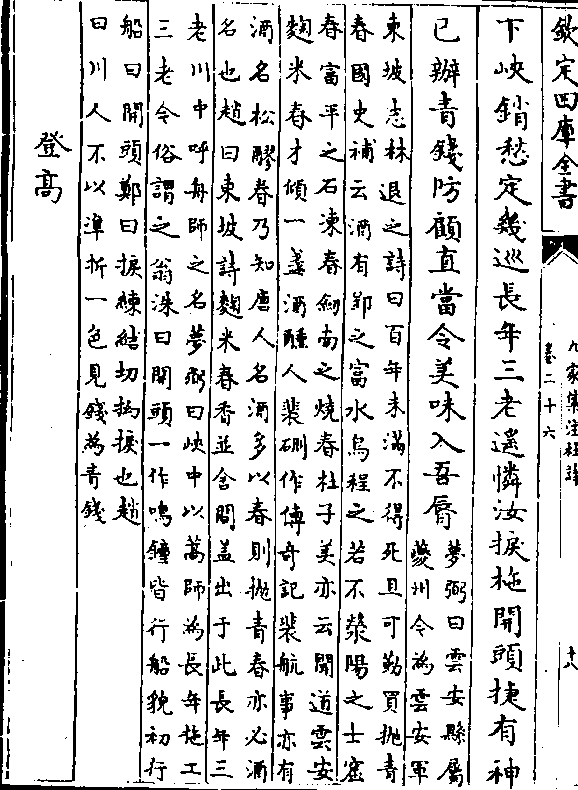 欽定四庫全書
九家集注杜詩
卷二十六
十八
下峽銷愁定幾巡長年三老遙憐汝捩柂開頭捷有神
已辦青錢防顧直當令美味入吾脣
夢弼曰雲安縣屬
夔州今為雲安軍
東坡志林退之詩曰百年未滿不得死且可勤買抛青
春國史補云酒有郢之富水烏程之若不滎陽之士窟
春富平之石凍春劒南之燒春杜子美亦云聞道雲安
麴米春才傾一盞酒醺人裴硎作傳奇記裴航事亦有
酒名松醪春乃知唐人名酒多以春則抛青春亦必酒
名也趙曰東坡詩麴米春香並舍聞蓋出于此長年三
老川中呼舟師之名夢弼曰峽中以蒿師為長年柂工
三老今俗謂之翁洙曰開頭一作鳴鐘皆行船貌初行
船曰開頭鄭曰捩練結切拗捩也趙
曰川人不以準折一色見錢為青錢
登高